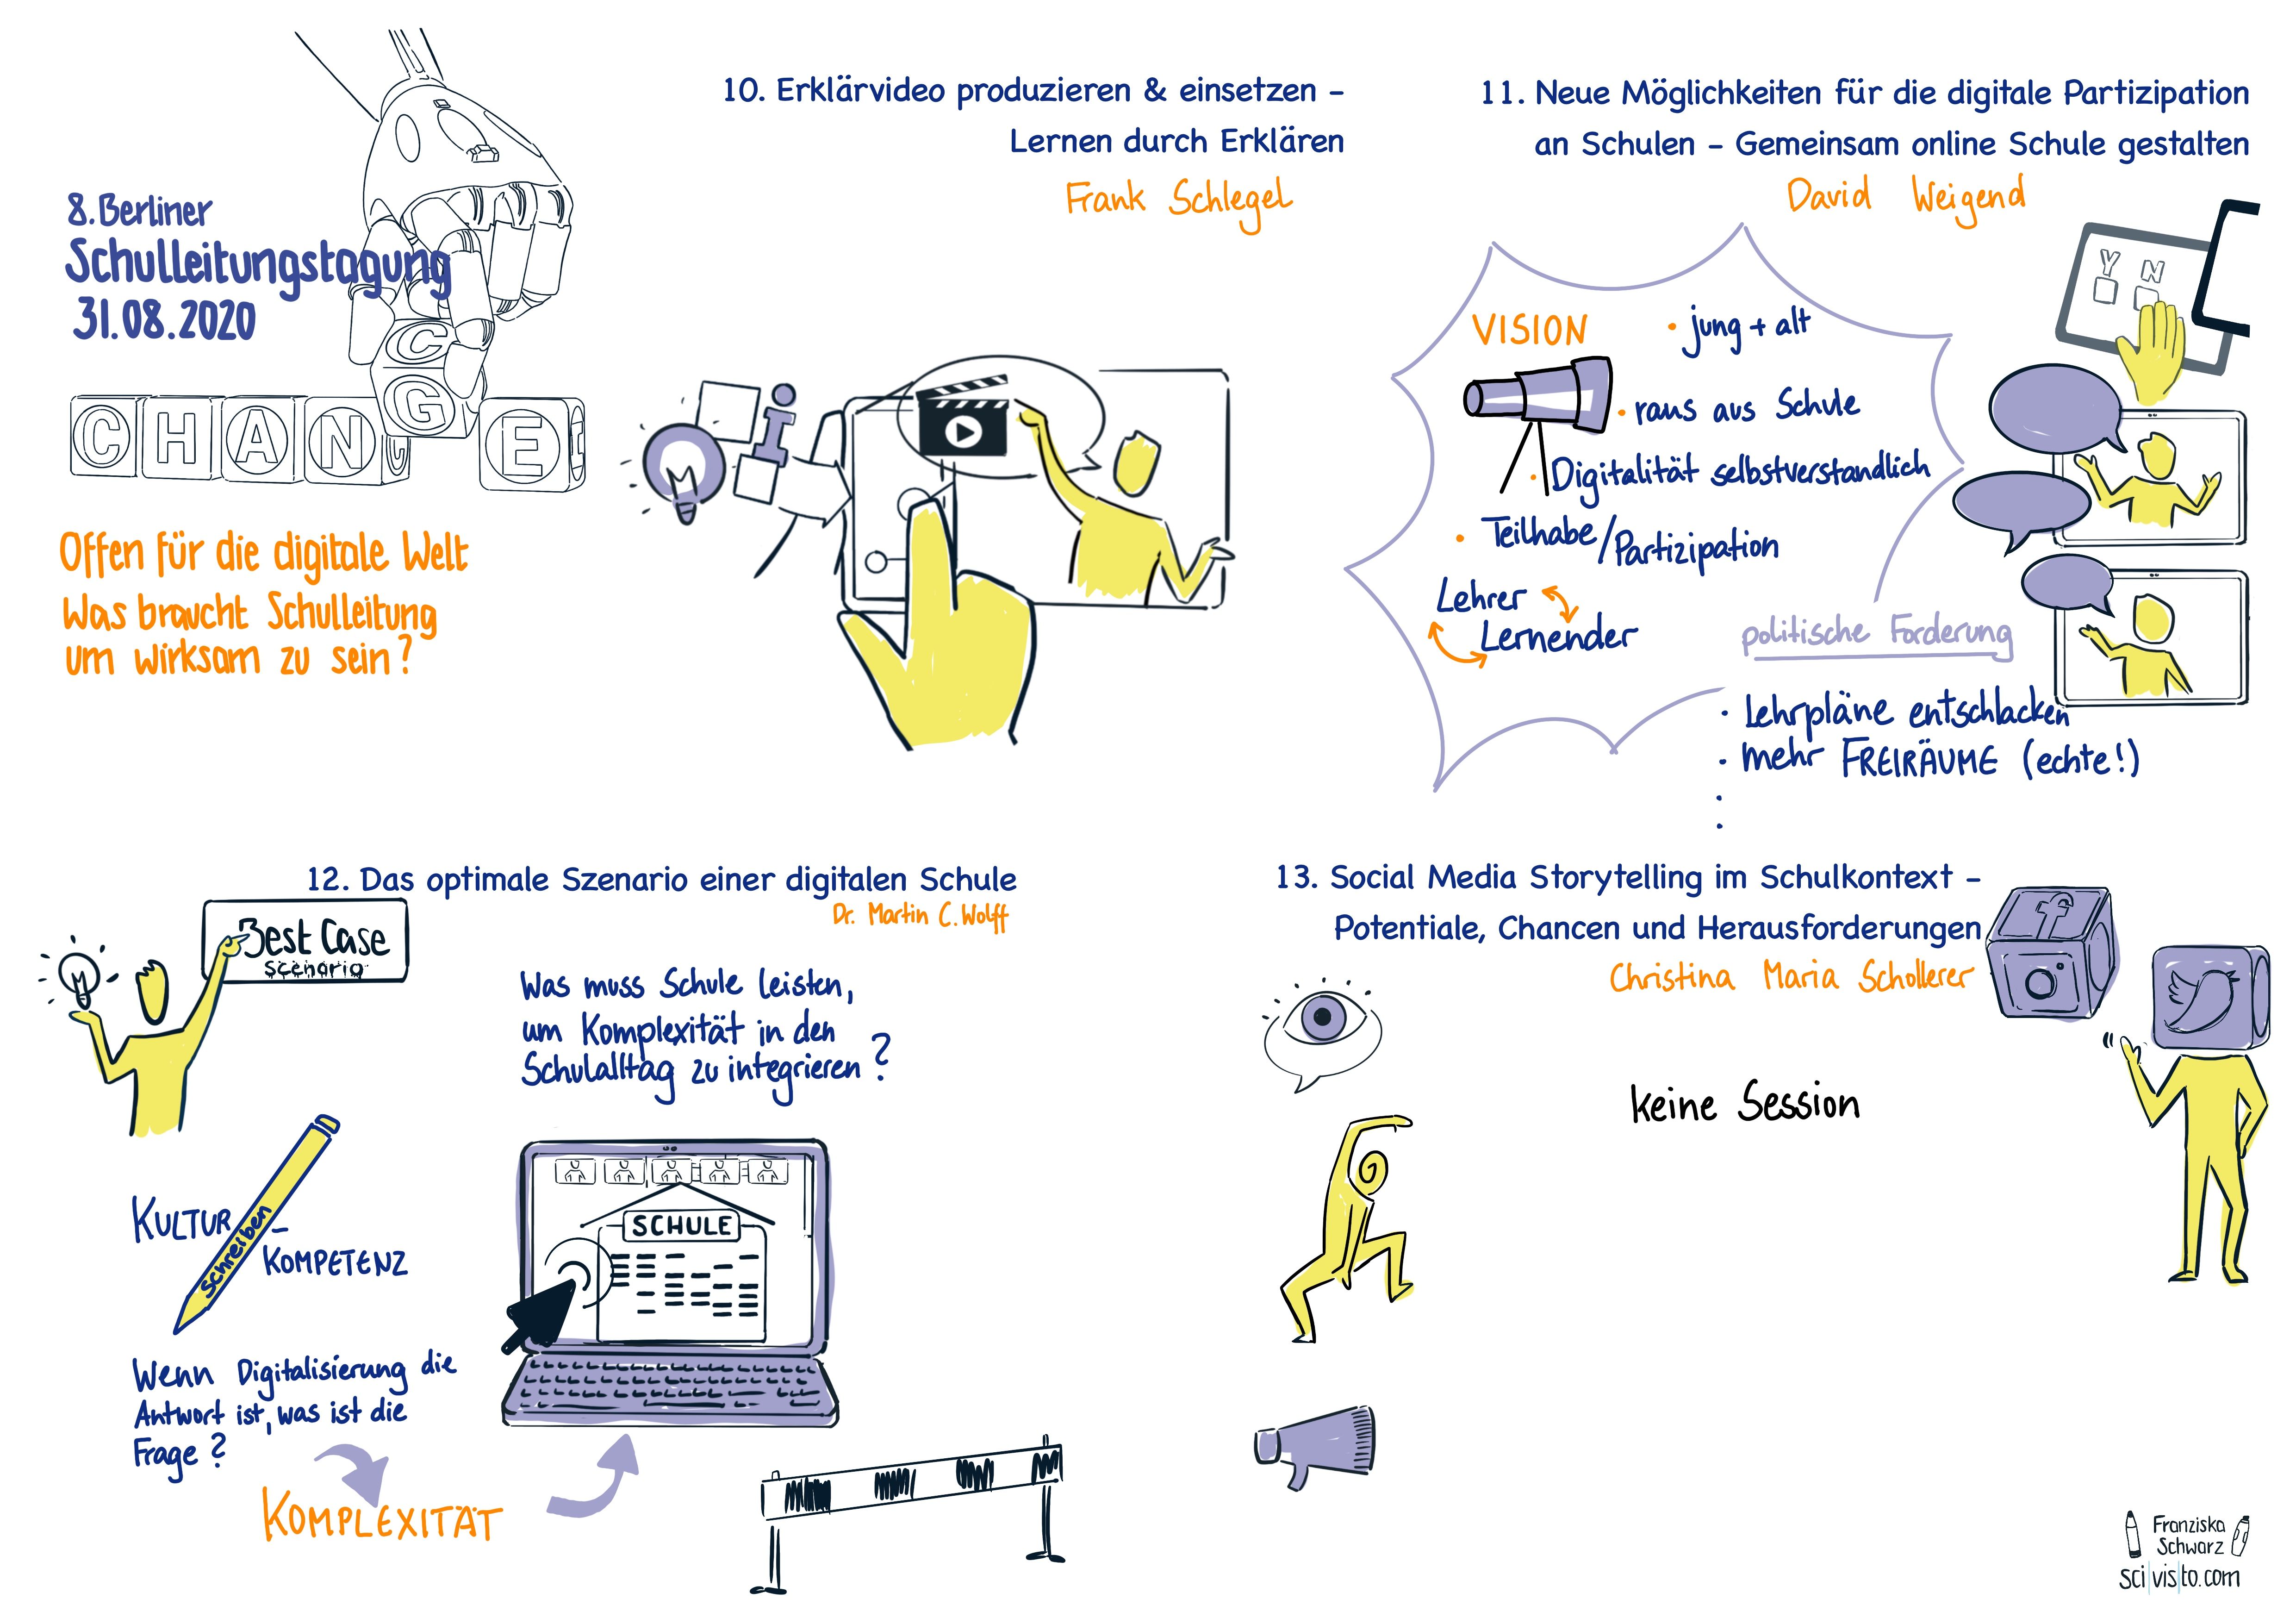 8. Berliner
Schulleitungstagung
31.08.2020
C
G
C H A N G E
Offen für die digitale Welt
Was braucht Schulleitung
um wirksam zu sein?
10. Erklärvideo produzieren & einsetzen –
Lernen durch Erklären
Frank Schlegel
i
11. Neue Möglichkeiten für die digitale Partizipation
an Schulen – Gemeinsam online Schule gestalten
David Weigend
Y N
VISION
• jung + alt
• raus aus Schule
• Digitalität selbstverstandlich
• Teilhabe/Partizipation
Lehrer
Lernender
politische Forderung
• Lehrpläne entschlacken
• mehr FREIRÄUME (echte!)
•
•
12. Das optimale Szenario einer digitalen Schule
Dr. Martin C. Wolff
Best Case
scenario
Was muss Schule leisten,
um Komplexität in den
Schulalltag zu integrieren?
KULTUR-
KOMPETENZ
Schreiben
SCHULE
Wenn Digitalisierung die
Antwort ist, was ist die
Frage?
KOMPLEXITÄT
13. Social Media Storytelling im Schulkontext –
Potentiale, Chancen und Herausforderungen
Christina Maria Schollerer
f
keine Session
Franziska
Schwarz
sci|vis|to.com